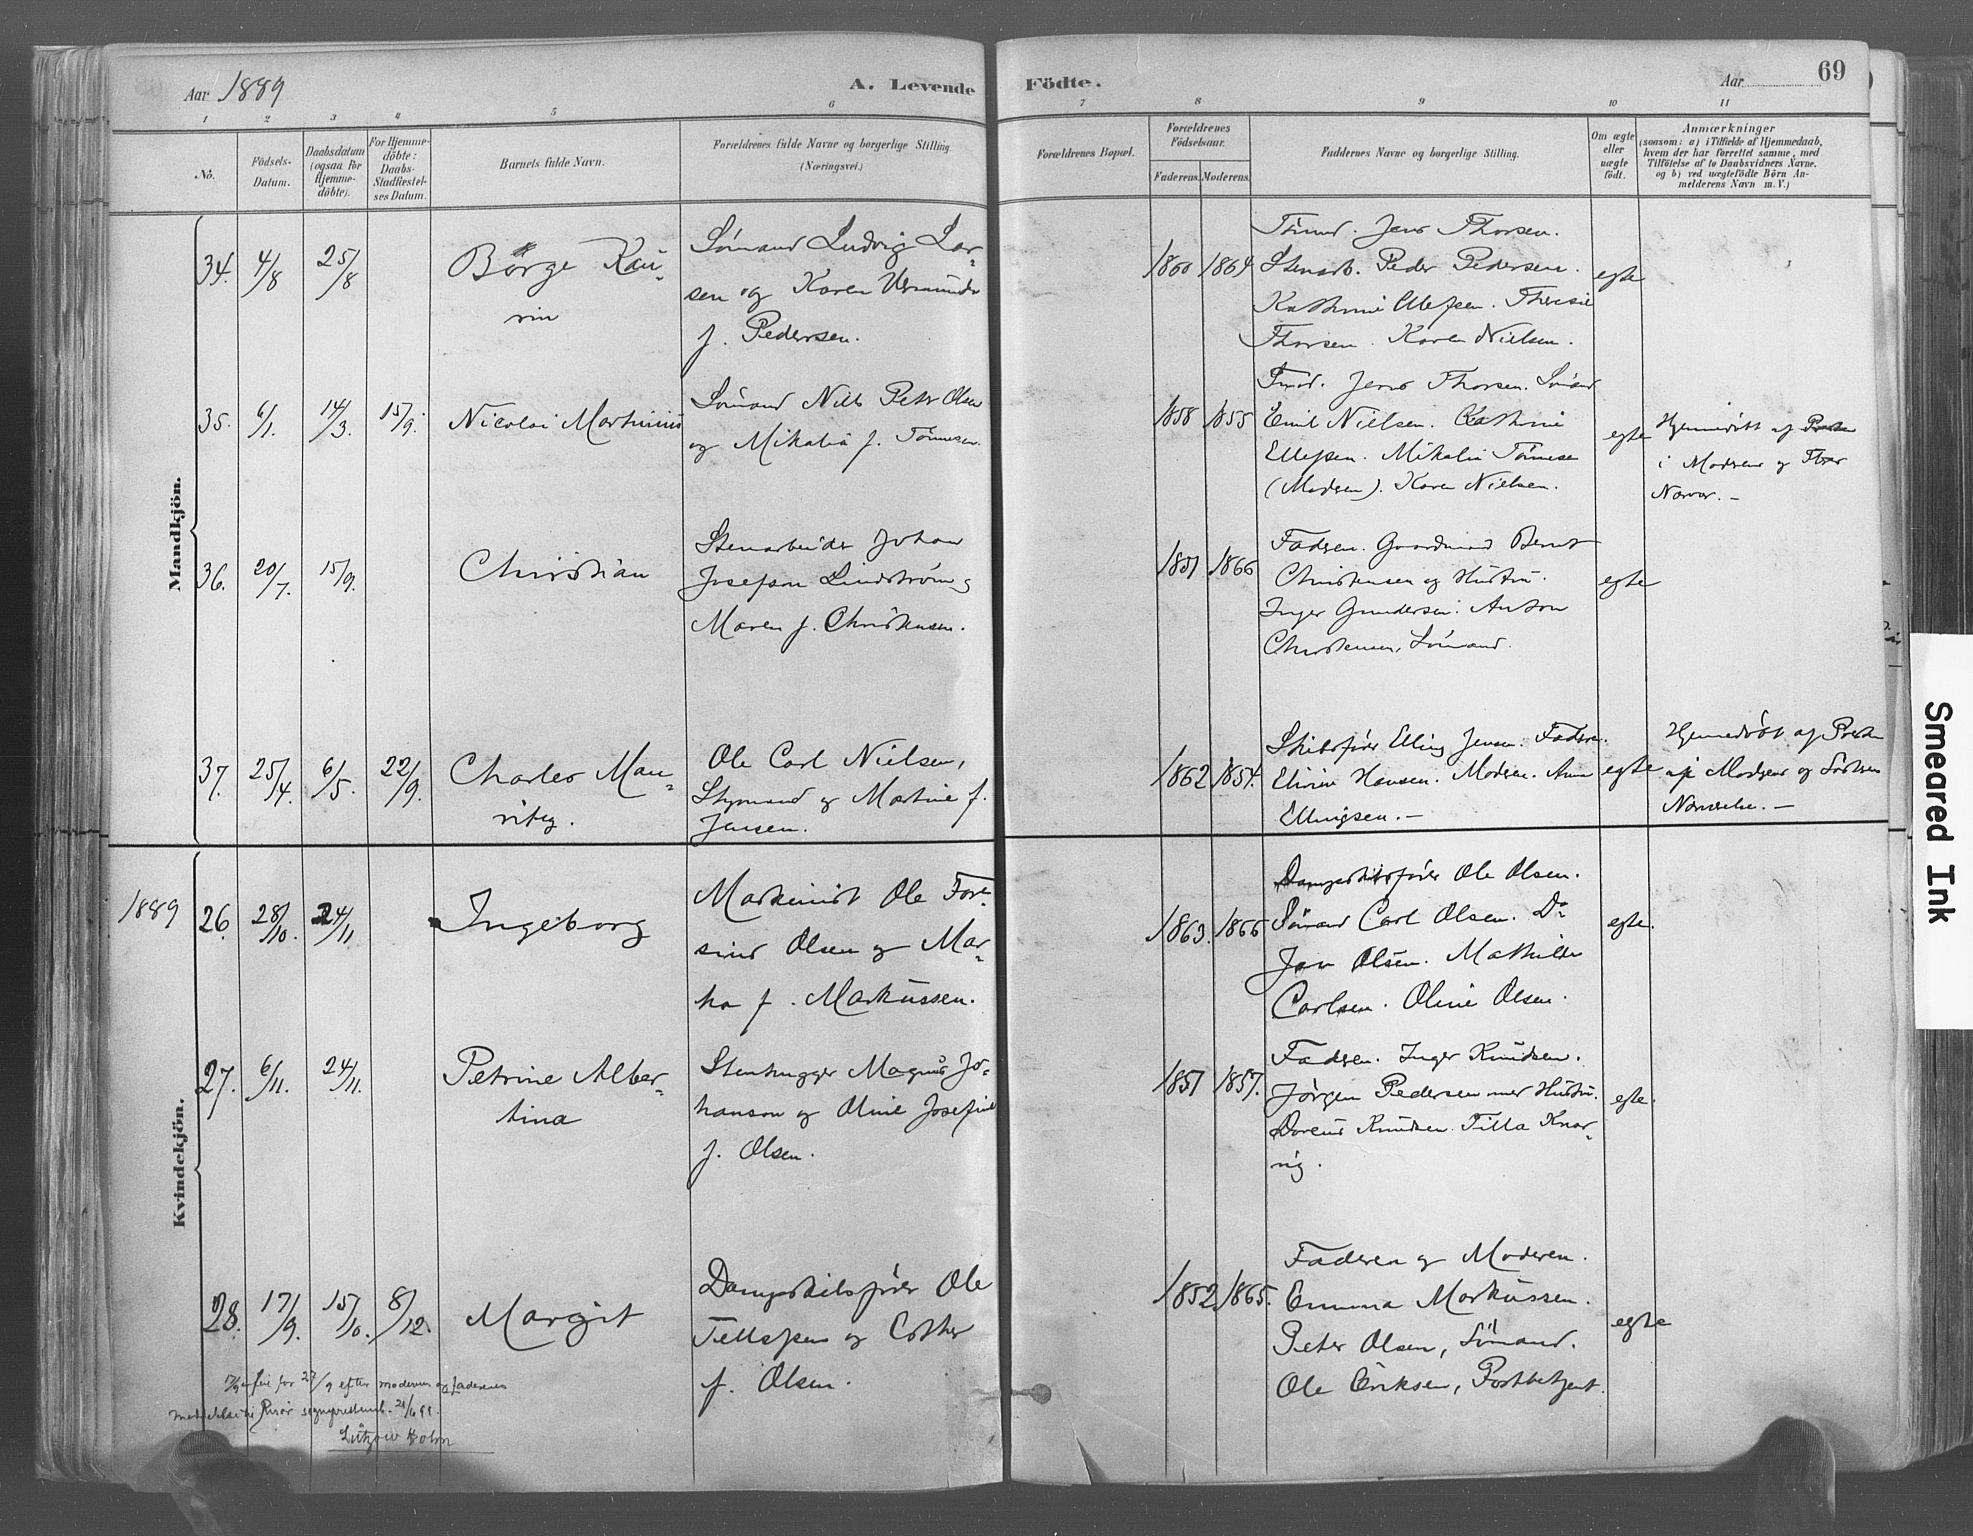 Aar 1889
A. Levende Födte.
Aar 69
1 2 3 4 5 6 7 8 9 10 11
No.
Födsels-Datum.
Daabsdatum (ogsaa for Hjemme-döbte).
For Hjemme-döbte: Daabs-Stadfæstel-ses Datum.
Barnets fulde Navn.
Forældrenes fulde Navne og borgerlige Stilling.
(Næringsvei.)
Forældrenes Bopæl.
Forældrenes Födselsaar.
Faderens. Moderens.
Faddernes Navne og borgerlige Stilling.
Om ægte eller uægte födt.
Anmærkninger
(saasom: a) i Tilfælde af Hjemmedaab,
hvem der har forrettet samme, med
Tilföielse af to Daabsvidners Navne,
og b) ved uægtefödte Börn An-
melderens Navn m. V.)
Mandkjön.
34. 4/8 25/8
Börge Kau-
rin
Sömand Ludvig Lar-
sen og Karen
f. Pedersen.
1860 1864
Tömmd. Jens Thorsen.
Stenarb. Peder Pedersen.
Kathrine Ellefsen. Theresie
Thorsen. Karen Nielsen.
egte
35. 6/1. 14/3. 15/9.
Nicolai Martinius
Sömand Nils Peter Olsen
og Mikalia f. Tönnesen.
1858 1855
Tömd. Jens Thorsen. Sömand
Emil Nielsen. Kathrine
Ellefsen. Mikalie Tönnese
(Modren). Karen Nielsen.
egte
Hjemmedöbt af
i Modrens og
Nærvær. -
36. 20/7. 15/9.
Christian
Stenarbeider Johan
Josefson Lindström og
Maren f. Christensen.
1851 1866
Fadren. Gaardmand Bernt
Christensen og Hustru.
Inger Gundersen. Anton
Christensen, Sömand.
egte
37. 25/4. 6/5. 22/9.
Charles Mau-
ritz.
Ole Carl Nielsen,
Styrmand og Martine f.
Jensen.
1862 1854.
Skibsförer Elling Jensen. Fadren.
Hansen. Modren. Anna
Ellingsen. -
egte
Hjemmedöbt af Præsten
Modrens og
Nærværelse. -
Kvindekjön.
1889
26. 28/10. 24/11
Ingeborg
Maskinist Ole For-
sind Olsen og Mar-
ta f. Markussen.
1863. 1866
Dampskibsförer Ole Olsen.
Sömand Carl Olsen. Do
Jan Olsen. Mathilde
Carlsen. Oline Olsen.
egte.
27. 6/11. 24/11.
Petrine Alber-
tina
Stenhugger Magnus Jo-
hanson og Oline Josefine
f. Olsen.
1851 1857.
Fadren. Inger Knudsen.
Jörgen Pedersen med Hustru.
Dorens Knudsen. Tilla Knar-
vig.
egte.
28. 17/9. 15/10. 8/12.
Margit
Dampskibsförer Ole
Tellefsen og Esther
f. Olsen.
1852 1865.
Faderen og Moderen.
Emma Markussen.
Peter Olsen, Sömand.
Ole Eriksen, Postbetjent.
egte
17/9 for 27/9 efter moderens og faderens
meddelelse til Risör sogneprestemb. 21/6 99.
Lützow Holm
Smeared Ink